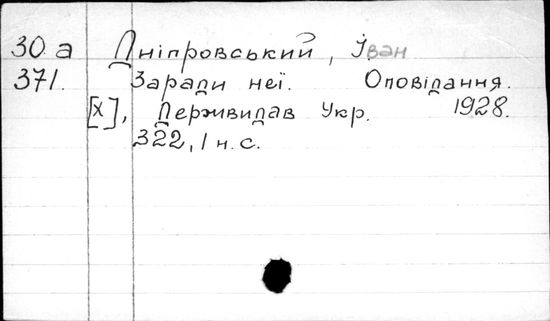 30 а Дніпровський, Іван
371. Заради неї. Оповідання.
[Х], Держвидав Укр. 1928.
322, 1 н. с.